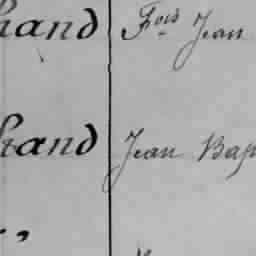 hand Fois Jean
hand Jean Bap
,,